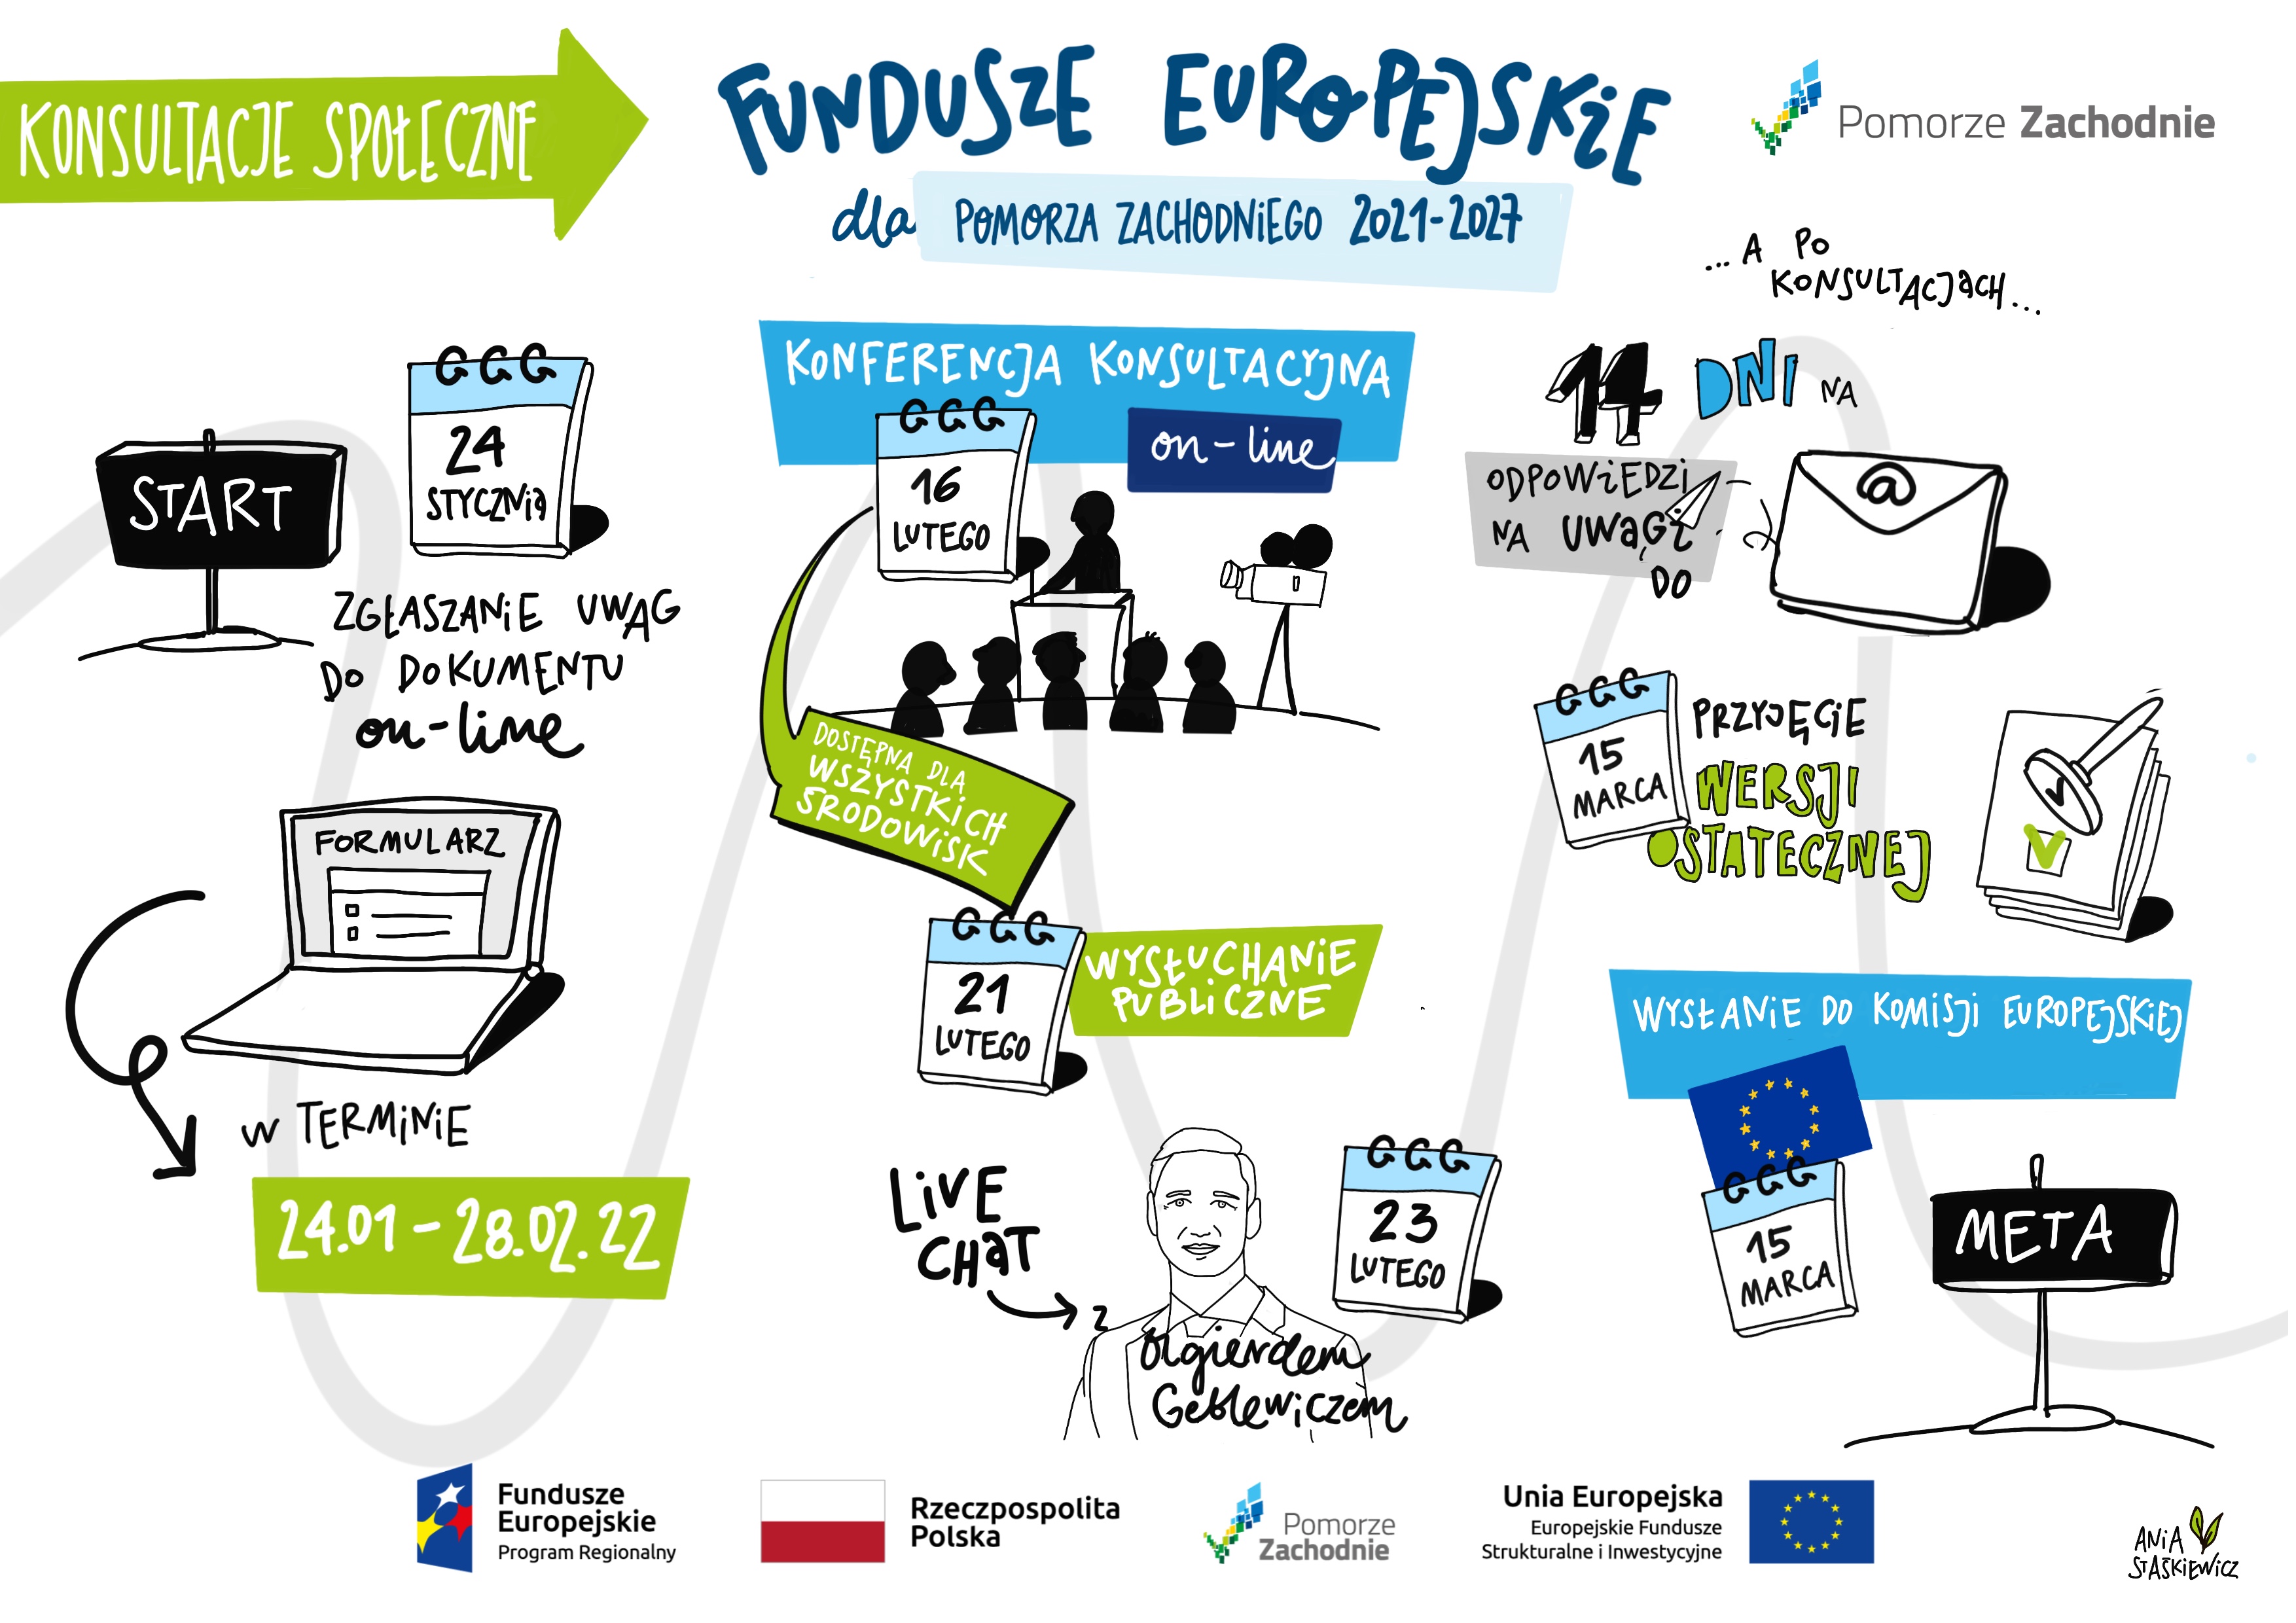 KONSULTACJE SPOŁECZNE
FUNDUSZE EUROPEJSKIE
dla POMORZA ZACHODNIEGO 2021-2027
Pomorze Zachodnie
START
24
STYCZNIA
ZGŁASZANIE UWAG
DO DOKUMENTU
on-line
FORMULARZ
W TERMINIE
24.01 - 28.02.22
KONFERENCJA KONSULTACYJNA
on-line
16
LUTEGO
DOSTĘPNA DLA
WSZYSTKICH
ŚRODOWISK
21
LUTEGO
WYSŁUCHANIE
PUBLICZNE
LIVE
CHAT
z
Olgierdem
Geblewiczem
23
LUTEGO
... A PO
KONSULTACJACH...
14 DNI NA
ODPOWIEDZI
NA UWAGI
DO
@
15
MARCA
PRZYJĘCIE
WERSJI
OSTATECZNEJ
WYSŁANIE DO KOMISJI EUROPEJSKIEJ
15
MARCA
META
Fundusze
Europejskie
Program Regionalny
Rzeczpospolita
Polska
Pomorze
Zachodnie
Unia Europejska
Europejskie Fundusze
Strukturalne i Inwestycyjne
ANIA
STAŚKIEWICZ